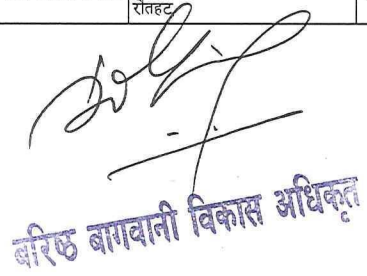 रौतहट
बरिष्ठ बागवानी विकास अधिकृत